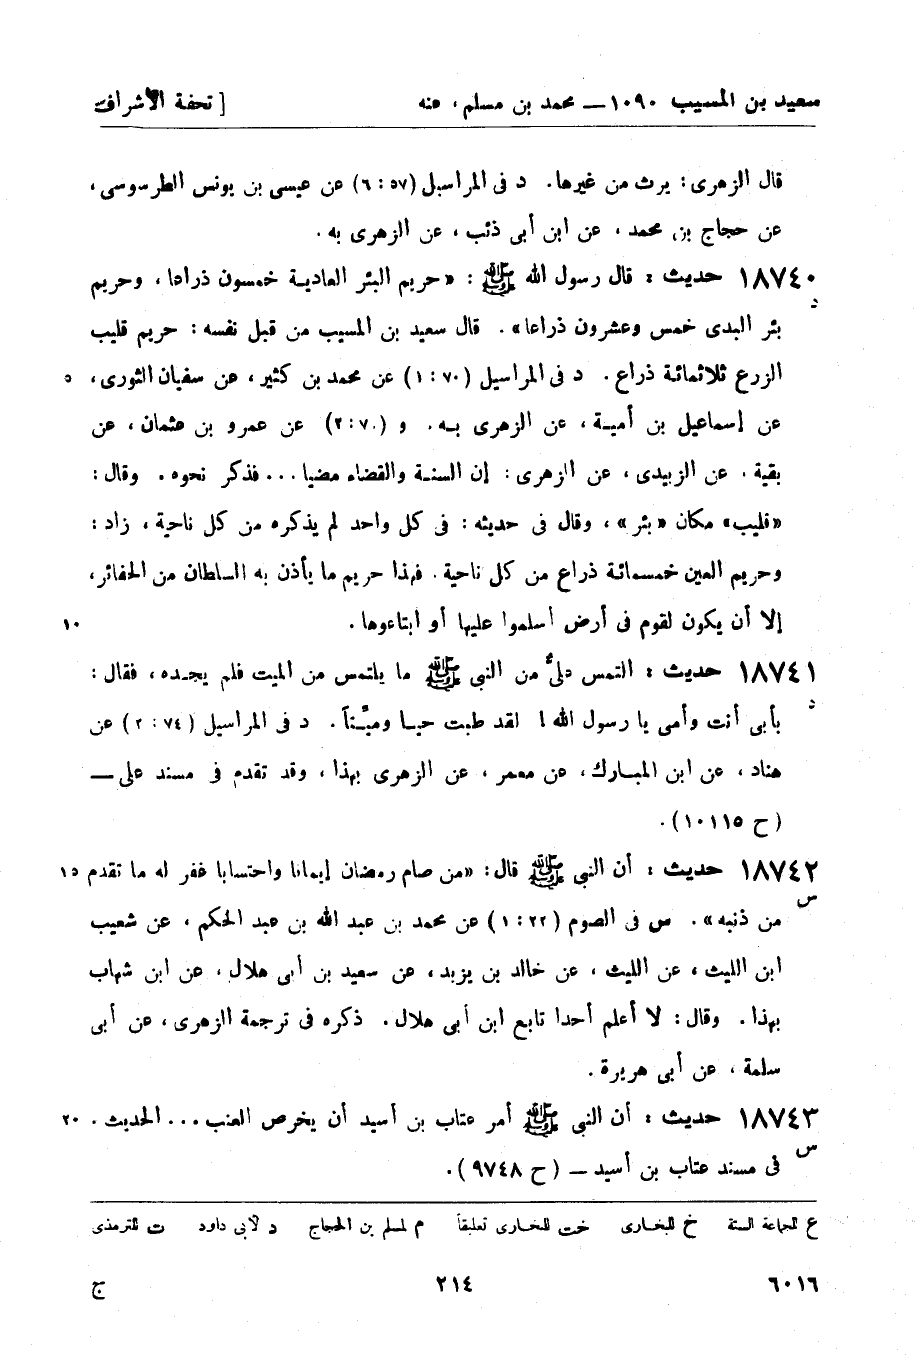 سعيد بن المسيب ١٠٩٠ — محمد بن مسلم، عنه [ تحفة الأشراف
قال الزهرى: يرث من غيرها. د فى المراسيل (٥٧ : ٦) عن عيسى بن يونس الطرسوسى،
عن حجاج بن محمد، عن ابن أبى ذئب، عن الزهرى به.
١٨٧٤٠ حديث: قال رسول الله ﷺ: «حريم البئر العادية خمسون ذراعا، وحريم
د
بئر البدى خمس وعشرون ذراعا». قال سعيد بن المسيب من قبل نفسه: حريم قليب
الزرع ثلاثمائة ذراع. د فى المراسيل (٧٠ : ١) عن محمد بن كثير، عن سفيان الثورى، ٥
عن إسماعيل بن أمية، عن الزهرى به. و (٧٠ : ٢) عن عمرو بن عثمان، عن
بقية، عن الزبيدى، عن الزهرى: إن السنة والقضاء مضيا... فذكر نحوه. وقال:
«قليب» مكان «بئر»، وقال فى حديثه: فى كل واحد لم يذكره من كل ناحية، زاد:
وحريم العين خمسمائة ذراع من كل ناحية. فهذا حريم ما يأذن به السلطان من الحفائر،
إلا أن يكون لقوم فى أرض أسلموا عليها أو ابتاعوها. ١٠
١٨٧٤١ حديث: التمس علىٌّ من النبى ﷺ ما يلتمس من الميت فلم يجده، فقال:
د
بأبى أنت وأمى يا رسول الله! لقد طبت حيا وميّتاً. د فى المراسيل (٧٤ : ٢) عن
هناد، عن ابن المبارك، عن معمر، عن الزهرى بهذا، وقد تقدم فى مسند على —
(ح ١٠١١٥).
١٨٧٤٢ حديث: أن النبى ﷺ قال: «من صام رمضان إيمانا واحتسابا غفر له ما تقدم ١٥
س
من ذنبه». س فى الصوم (٢٢ : ١) عن محمد بن عبد الله بن عبد الحكم، عن شعيب
ابن الليث، عن الليث، عن خالد بن يزيد، عن سعيد بن أبى هلال، عن ابن شهاب
بهذا. وقال: لا أعلم أحدا تابع ابن أبى هلال. ذكره فى ترجمة الزهرى، عن أبى
سلمة، عن أبى هريرة.
١٨٧٤٣ حديث: أن النبى ﷺ أمر عتاب بن أسيد أن يخرص العنب... الحديث. ٢٠
س
فى مسند عتاب بن أسيد — (ح ٩٧٤٨).
ع للجماعة الستة خ للبخارى خت للبخارى تعليقاً م لمسلم بن الحجاج د لأبى داود ت للترمذى
٦٠١٦ ٢١٤ ج